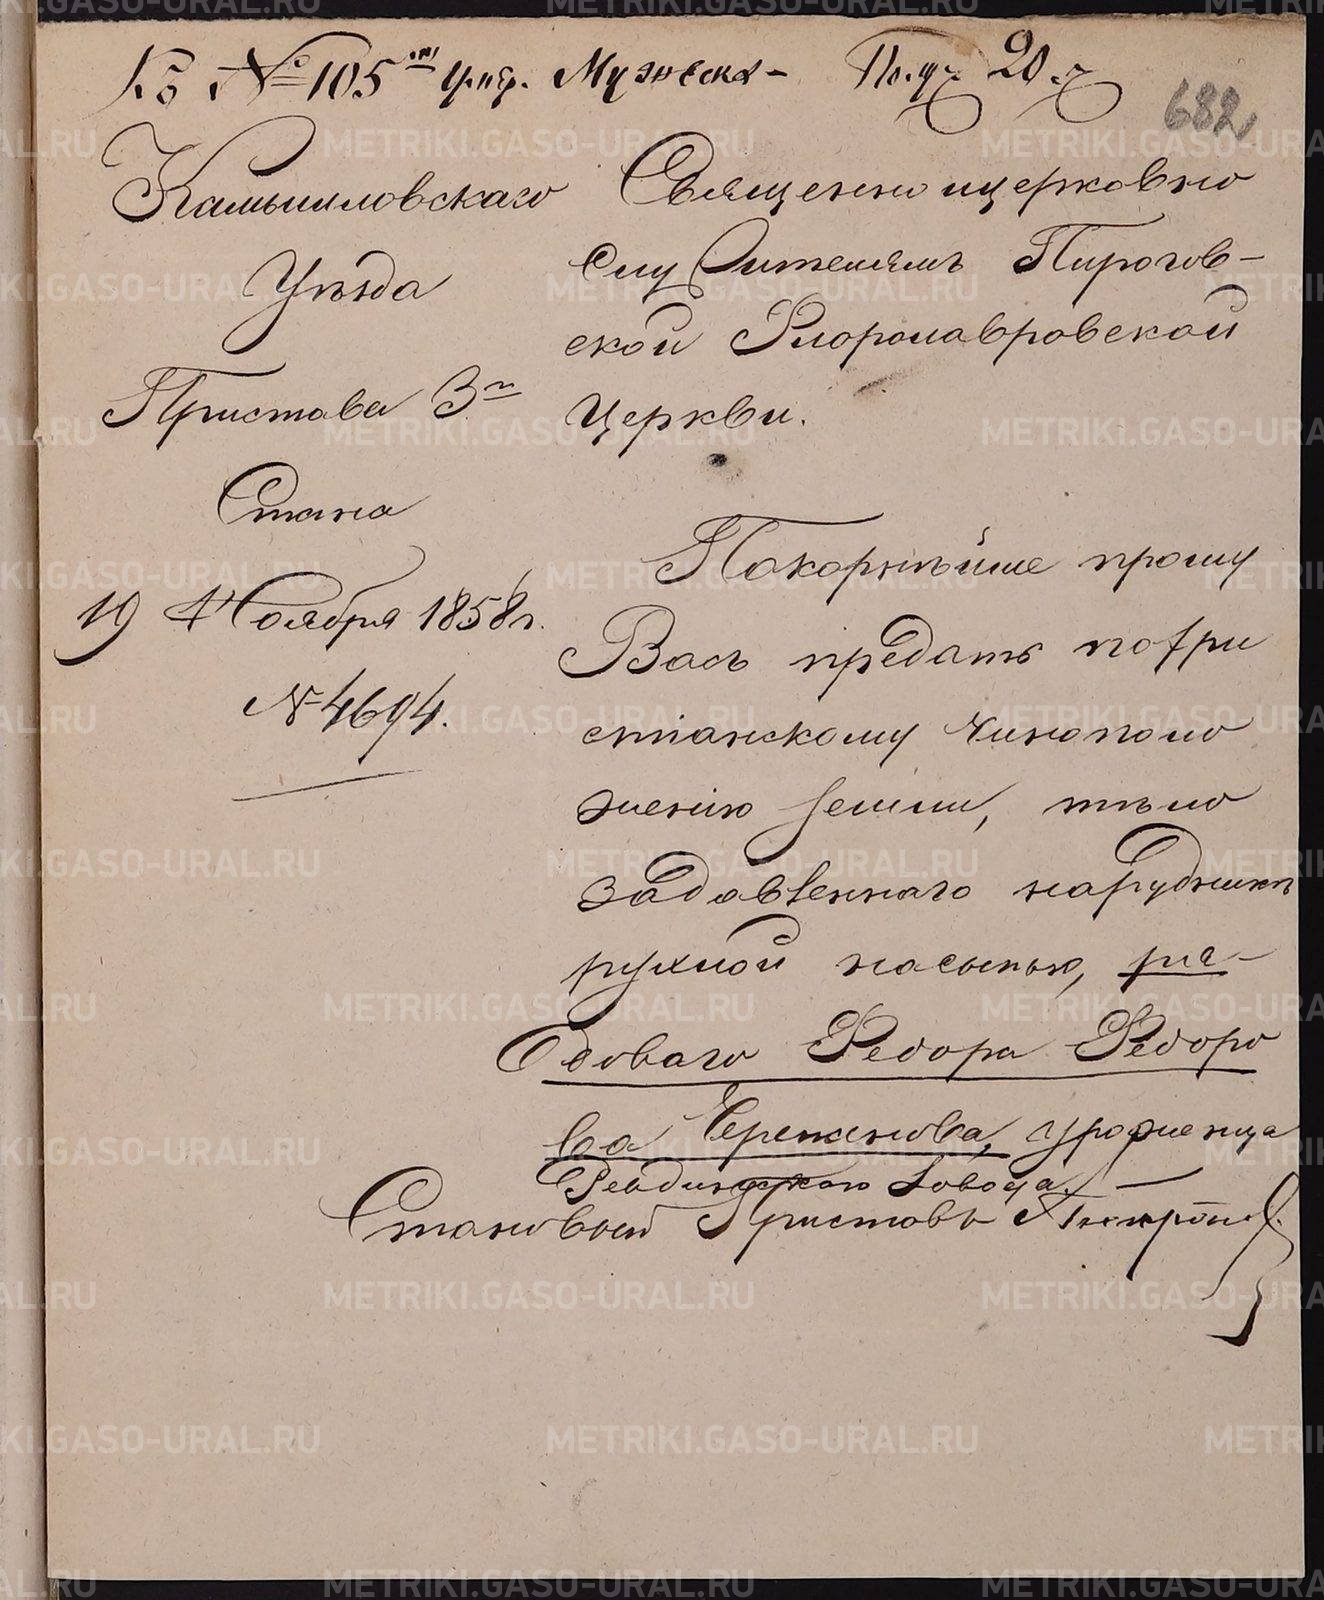 Къ № 105 умер. Мужеска- Получ 20.
682
Камышловскаго
Уѣзда
Пристава 3го
Стана
19 Ноября 1858г.
№ 4694.
Священно церковно
служителямъ Пирогов-
ской Флоролавровской
Церкви.
Покорнѣйше прошу
Васъ предать по хри
стіанскому чинополо
женію земли, тѣло
задавленнаго нарудникѣ
рухлой насыпью, ря-
доваго Федора Федоро
ва Черепанова, уроженца
Ревдинскаго Завода. —
Становый Приставъ
METRIKI.GASO-URAL.RU